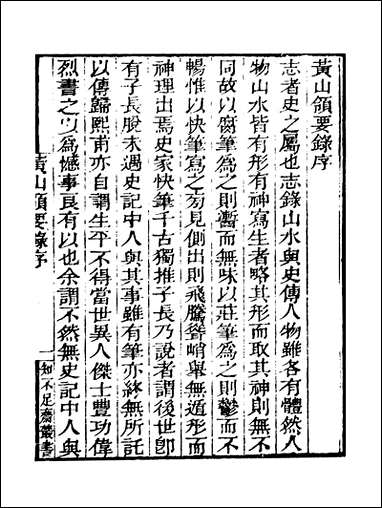 黃山領要錄序
志者史之屬也志錄山水與史傳人物雖各有體然人
物山水皆有形有神寫生者略其形而取其神則無不
同故以腐筆為之則蹔而無味以莊筆為之則鬱而不
暢惟以快筆寫之旁見側出則飛騰聳峭舉無遁形而
神理出焉史家快筆千古獨推子長乃說者謂後世卽
有子長脫未遇史記中人與其事雖有筆亦終無所託
以傳歸熙甫亦自謂生平不得當世異人傑士豐功偉
烈書之以為憾事良有以也余謂不然無史記中人與
黃山領要錄序
一
知不足齋叢書